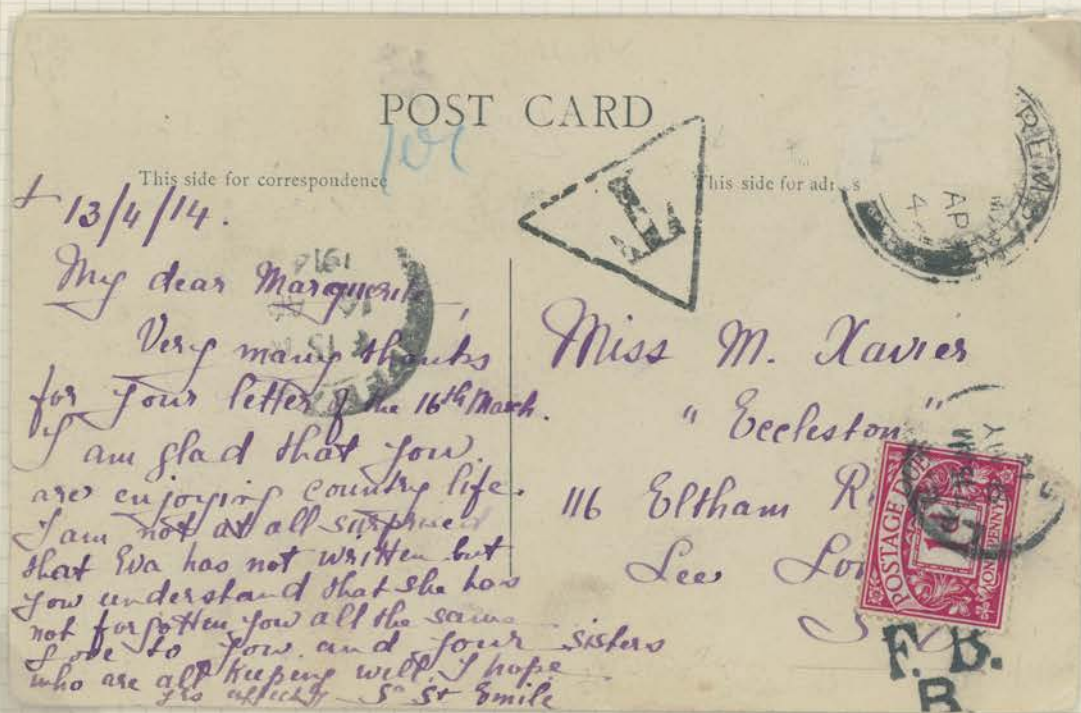 POST CARD
10c
This side for correspondence
This side for
T
REMBAN
AP
4
1914
+ 13/4/14.
My dear Marguerite,
Very many thanks
for your letter of the 16th March.
I am glad that you
are enjoying country life.
I am not at all surprised
that Eva has not written but
you understand that she has
not forgotten you all the same
Love to you and your sisters
who are all keeping well I hope
Yrs affectly Sr St Emile
Miss M. Xavier
"Eccleston"
116 Eltham
Lee
POSTAGE DUE
1D
ONE PENNY
F. B.
B.